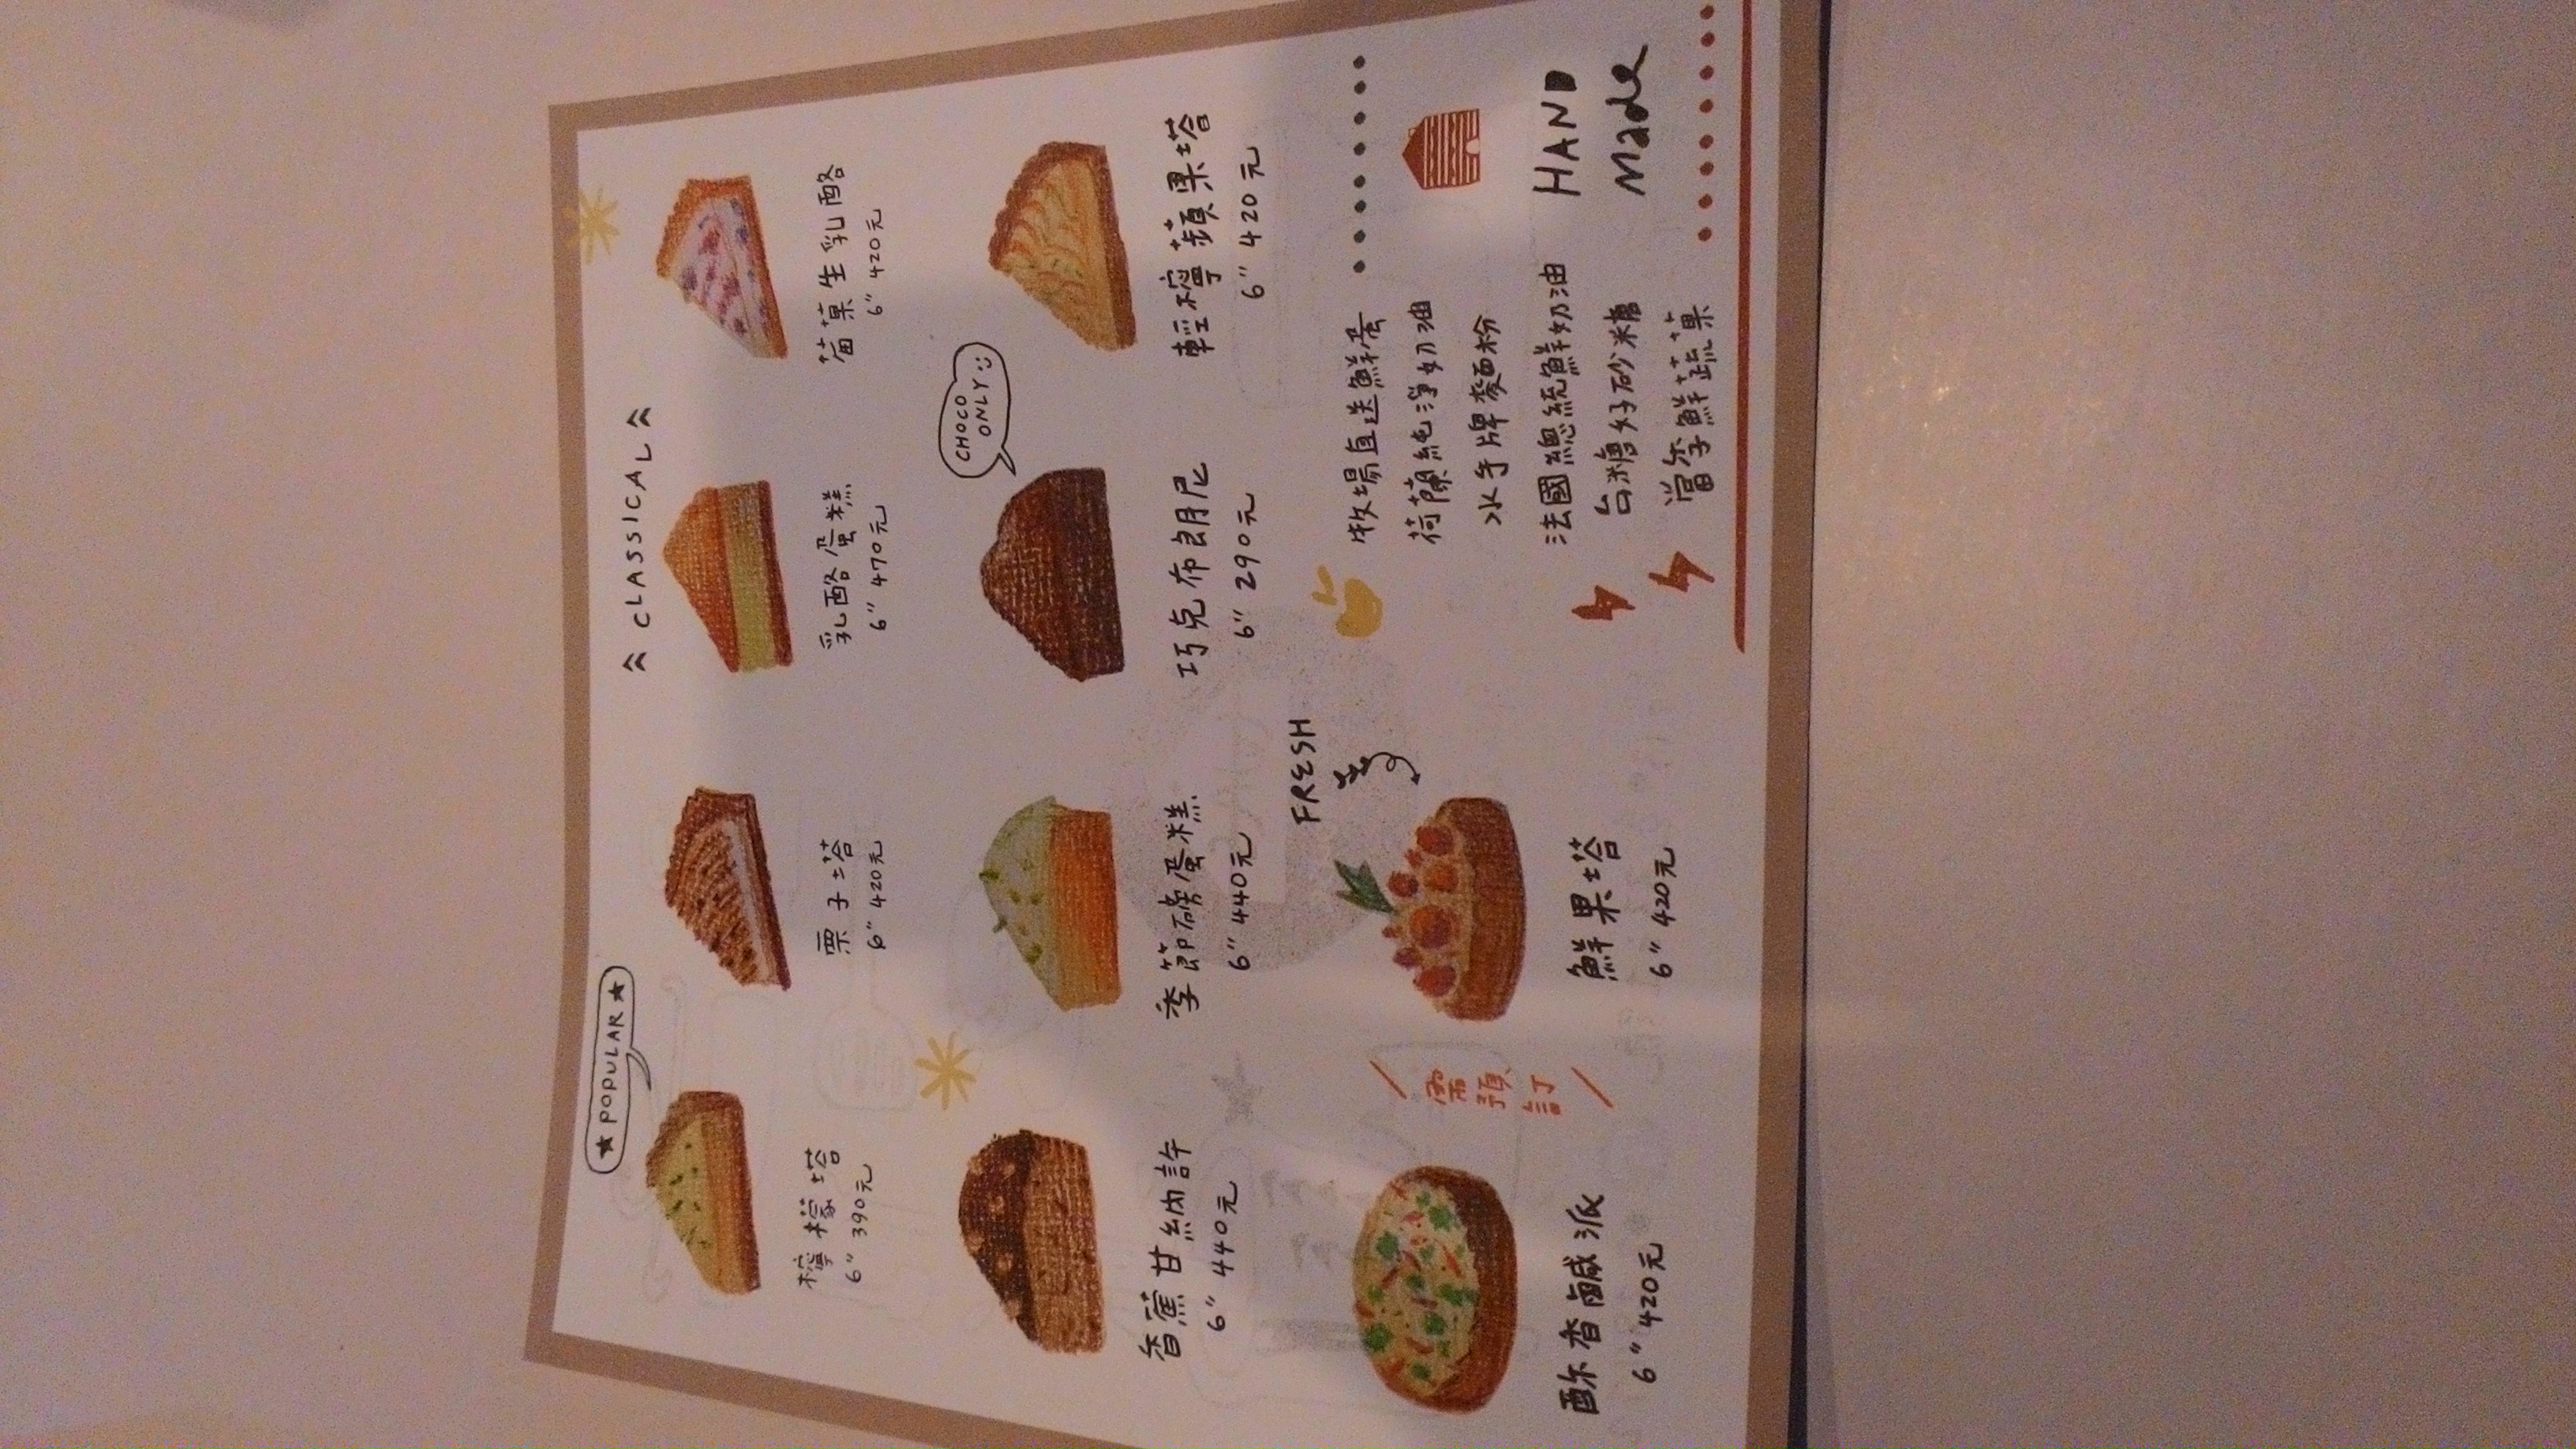 ★ POPULAR ★
CLASSICAL
檸檬塔
6" 390元
栗子塔
6" 420元
乳酪蛋糕
6" 470元
莓菓生乳酪
6" 420元
CHOCO
ONLY
香蕉甘納許
6" 440元
季節磅蛋糕
6" 440元
巧克布朗尼
6" 290元
輕檸蘋果塔
6" 420元
FRESH
需預訂
酥香鹹派
6" 420元
鮮果塔
6" 420元
牧場直送鮮蛋
荷蘭純淨奶油
水手牌麵粉
法國總統鮮奶油
台糖好砂糖
當季鮮蔬菓
HAND
Made